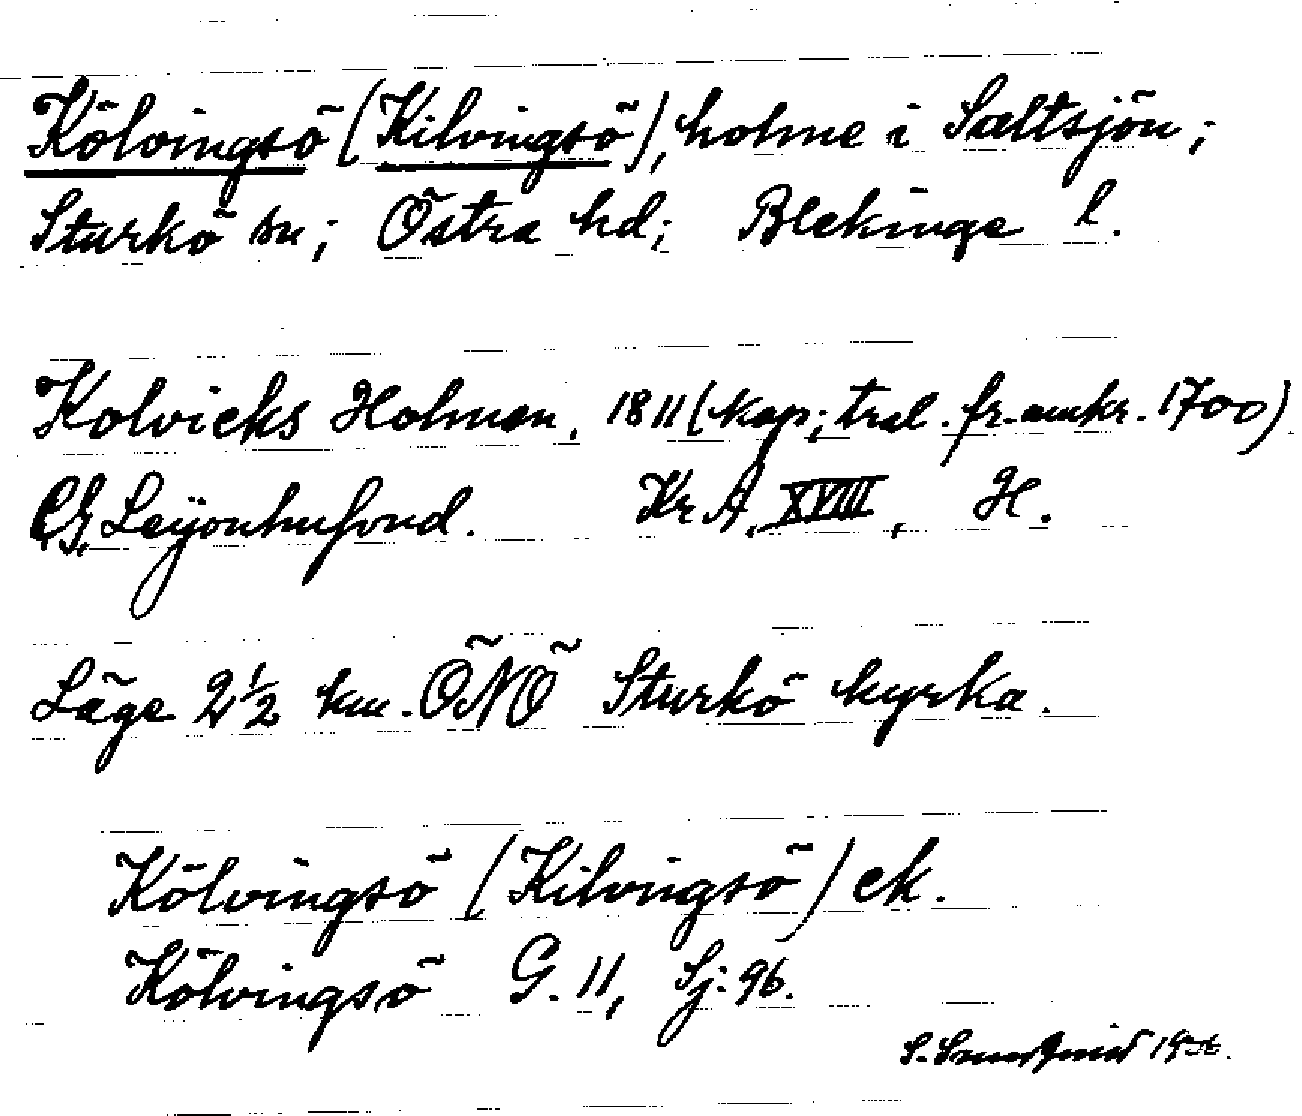 Kölvingsö (Kilvingsö), holme i Saltsjön;
Sturkö sn; Östra hd; Blekinge l.
Kolvicks Holmen, 1811 (kop; tral. fr. omkr. 1700)
C.G. Leijonhufvud. Kr A, XVIII, H.
Läge 2½ km. ÖNÖ Sturkö kyrka.
Kölvingsö (Kilvingsö) ek.
Kölvingsö G. 11, Sj: 96.
S.